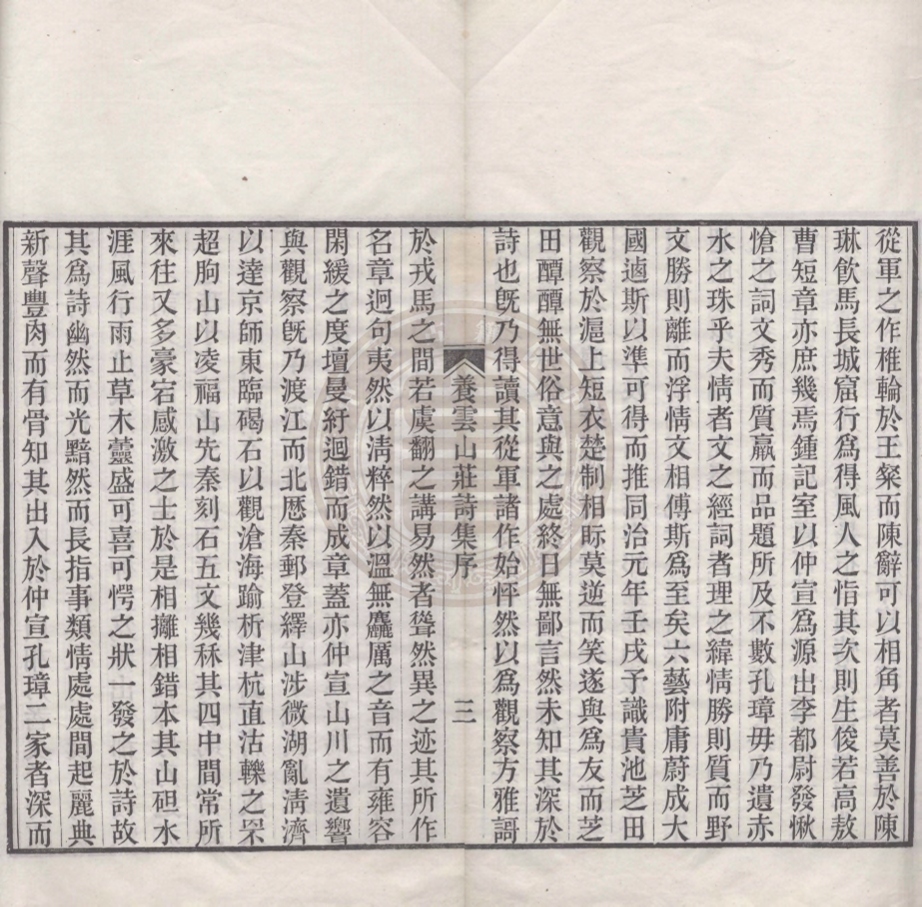 從軍之作椎輪於王粲而陳辭可以相角者莫善於陳
琳飲馬長城窟行爲得風人之恉其次則生俊若高敖
曹短章亦庶幾焉鍾記室以仲宣爲源出李都尉發愀
愴之詞文秀而質羸而品題所及不數孔璋毋乃遺赤
水之珠乎夫情者文之經詞者理之緯情勝則質而野
文勝則離而浮情文相傅斯爲至矣六藝附庸蔚成大
國遹斯以準可得而推同治元年壬戌予識貴池芝田
觀察於滬上短衣楚制相眎莫逆而笑遂與爲友而芝
田醰醰無世俗意與之處終日無鄙言然未知其深於
詩也旣乃得讀其從軍諸作始怦然以爲觀察方雅謌
養雲山莊詩集序
三
於戎馬之間若虞翻之講易然者聳然異之迹其所作
名章迥句夷然以淸粹然以溫無麤厲之音而有雍容
閑緩之度壇曼紆迴錯而成章蓋亦仲宣山川之遺響
與觀察旣乃渡江而北歷秦郵登繹山涉微湖亂淸濟
以達京師東臨碣石以觀滄海踰析津杭直沽轢之罘
超朐山以凌福山先秦刻石五文幾秝其四中間常所
來往又多豪宕感激之士於是相攡相錯本其山砠水
涯風行雨止草木虆盛可喜可愕之狀一發之於詩故
其爲詩幽然而光黯然而長指事類情處處間起麗典
新聲豐肉而有骨知其出入於仲宣孔璋二家者深而